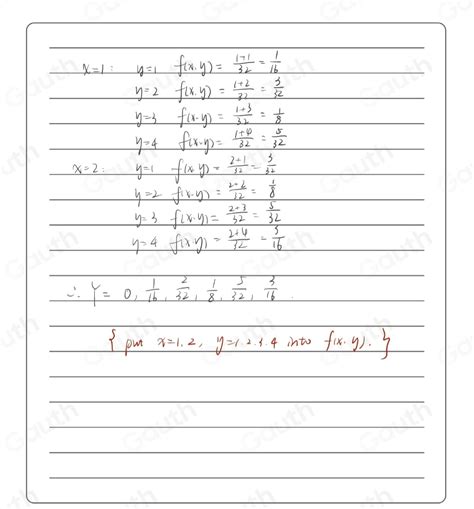 x=1: y=1 f(x.y) = 1+1/32 = 1/16
y=2 f(x.y) = 1+2/32 = 3/32
y=3 f(x.y) = 1+3/32 = 1/8
y=4 f(x.y) = 1+4/32 = 5/32
x=2: y=1 f(x.y) = 2+1/32 = 3/32
y=2 f(x.y) = 2+2/32 = 1/8
y=3 f(x.y) = 2+3/32 = 5/32
y=4 f(x.y) = 2+4/32 = 3/16
∴ Y = 0, 1/16, 2/32, 1/8, 5/32, 3/16.
{ put x=1.2, y=1.2.3.4 into f(x.y). }
Gauth